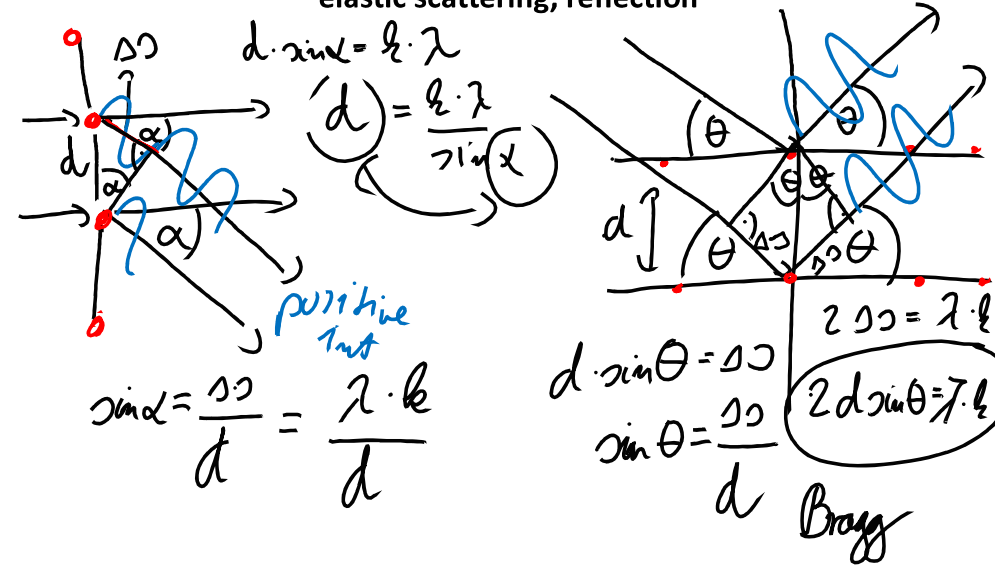 elastic scattering, reflection
Δs
d·sinα = k·λ
d = k·λ / sin α
α
d
α
α
positive
Int
sinα = Δs / d = λ·k / d
θ
θ
θ
θ
d
θ
Δs
Δs
θ
2Δs = λ·k
d·sinθ = Δs
2d sinθ = λ·k
sin θ = Δs / d
Bragg